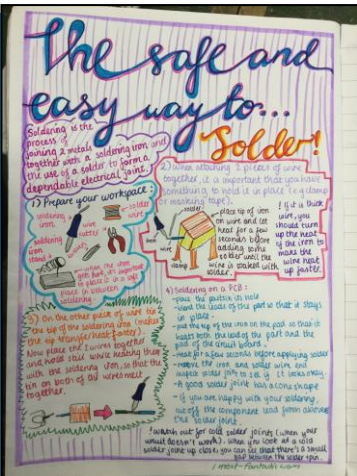 The safe and
easy way to...
Solder!
Soldering is the
process of
joining 2 metals
together with a soldering iron and
the use of a solder to form a
dependable electrical joint.
1) Prepare your workspace:
soldering
iron
solder
wire
wire
cutter
soldering
iron
stand
when the iron
gets hot, it's important
to place it in a safe
place in between
soldering.
2) When attaching 2 pieces of wire
together, it is important that you have
something to hold it in place (e.g clamp
or masking tape).
solder
wire
clamp
place tip of iron
on wire and let
heat for a few
seconds before
adding some
solder until the
wire is soaked with
solder.
! if it is thick
wire, you
should turn
up the heat
of the iron to
make the
wire heat
up faster.
3) On the other piece of wire tin
the tip of the soldering iron (makes
the tip transfer heat faster)
Now place the 2 wires together
and hold still while heating them
with the soldering iron, so that the
tin on both of the wires melt
together.
4) Soldering on a PCB:
-place the part in its hole
-bend the leads of the part so that it stays
in place.
-put the tip of the iron on the pad so that it
heats both the lead of the part and the
pad of the circuit board.
-Heat for a few seconds before applying solder
-remove the iron and solder wire and
-A good solder joint has a cone shape
-if you are happy with your soldering,
cut off the component lead from above
the solder joint.
! watch out for cold solder joints (when your
circuit doesn't work). when you look at a cold
solder joint up close, you can see that there's a small
gap between the solder + pin.